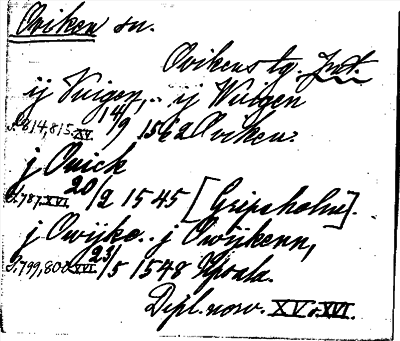 Oviken sn.
Ovikens tg. Jmt.
ij Vuigen,.. ij Wuigen
S. 814, 815. XV. 14/9 1562 Oviken.
j Ovick
S. 787. XVI. 20/2 1545 [Gripsholm].
j Owijke.. j Owijkenn,
S. 799, 800. XVI. 23/5 1548 Upsala.
Dipl. norv. XV o. XVI.